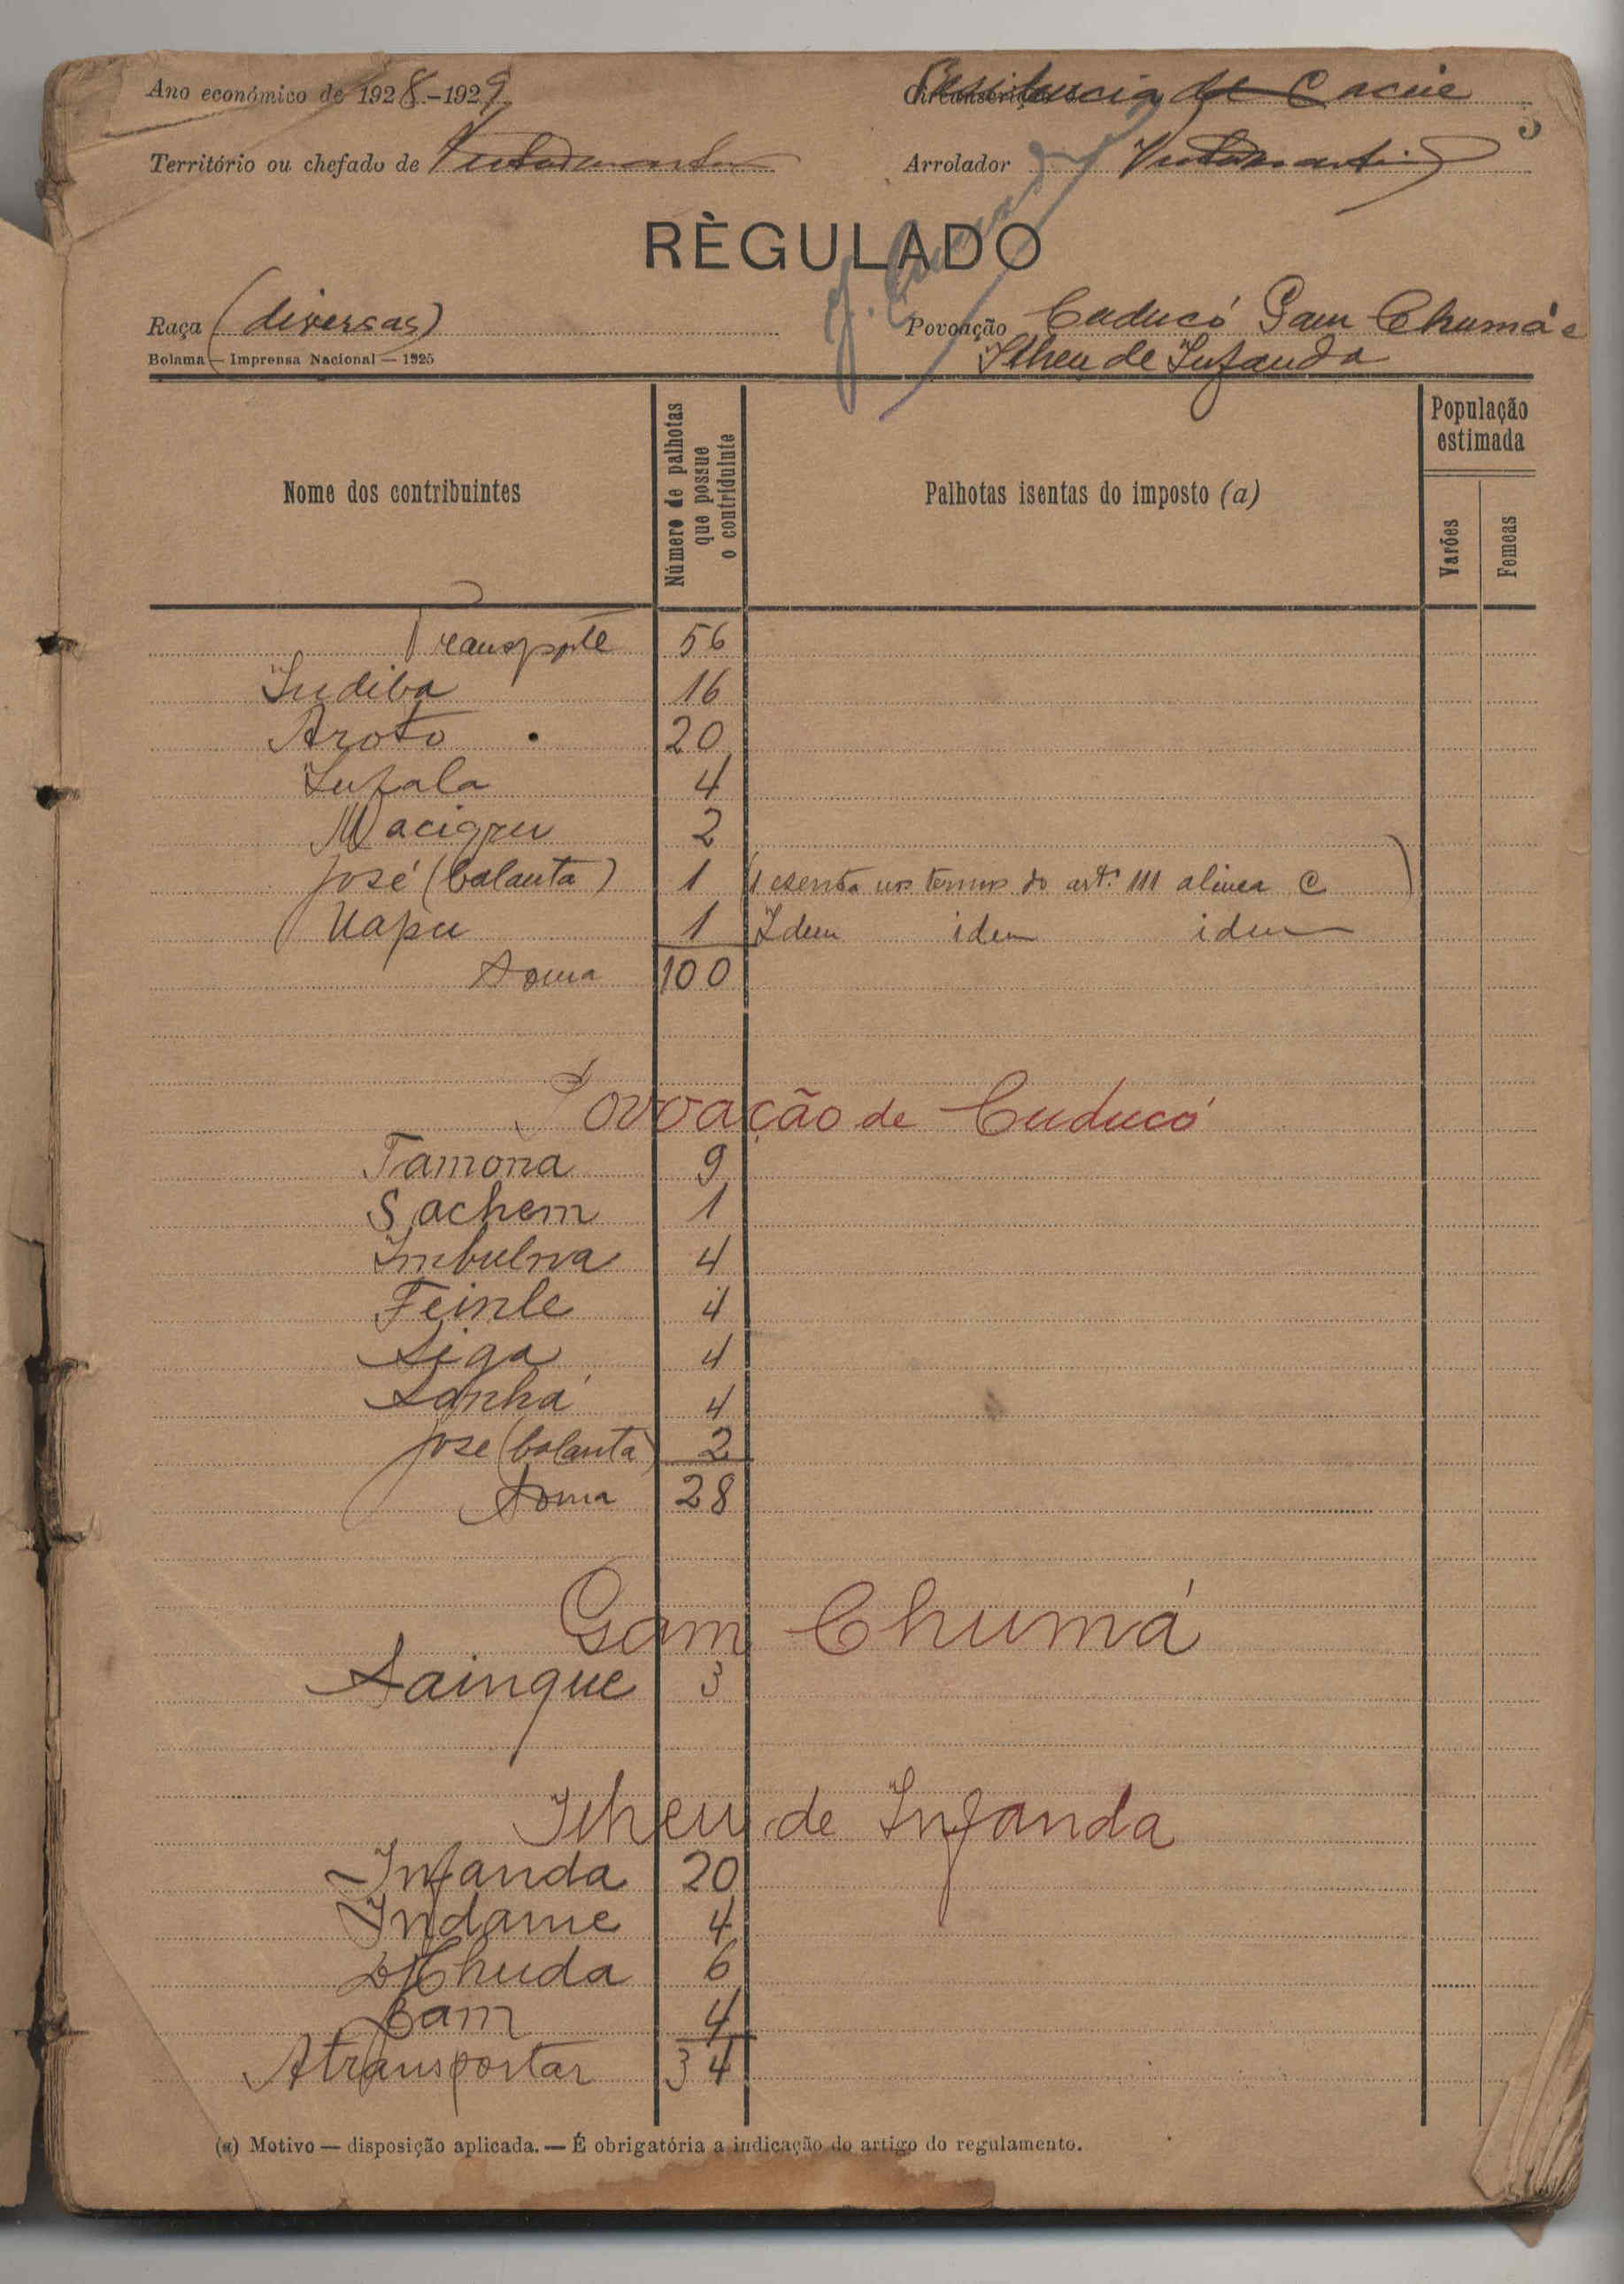 Ano económico de 1928-1929
Residencia de Cacine
3
Território ou chefado de
Arrolador
RÈGULADO
Raça (diversas)
Povoação Cuducó Gam Chumá e
Ilheu de Infanda
Bolama — Imprensa Nacional — 1925
Nome dos contribuintes
Número de palhotas que possue o contriduinte
Palhotas isentas do imposto (a)
População estimada
Varões
Femeas
Transporte 56
Indiba 16
Aroto 20
Infala 4
2
José (balanta) 1 (1 esenta nos termos do artº 111 alinea C)
Uapu 1 Idem idem idem
Soma 100
Povoação de Cuducó
Tamona 9
Sachem 1
Imbulna 4
Feinle 4
Siga 4
Sanhá 4
José (balanta) 2
Soma 28
Gam Chumá
Sainque 3
Ilheu de Infanda
Infanda 20
Indame 4
6
Bam 4
A transportar 34
(a) Motivo — disposição aplicada. — É obrigatória a indicação do artigo do regulamento.